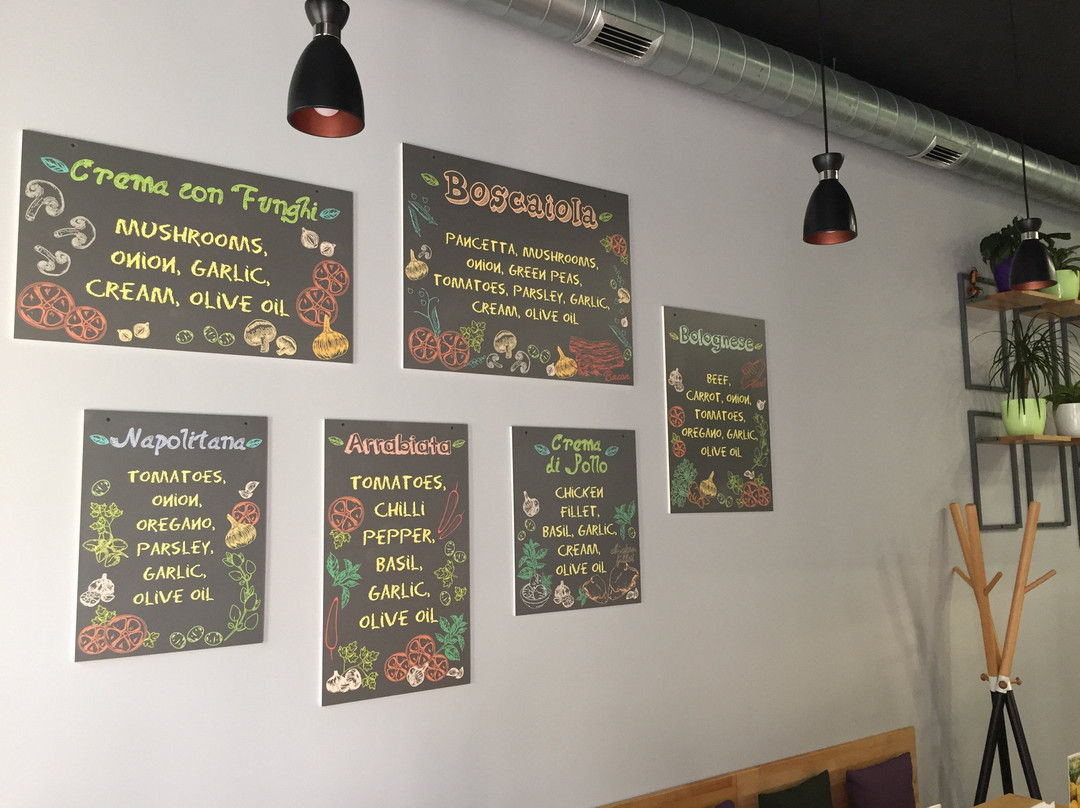 Crema con Funghi
MUSHROOMS,
ONION, GARLIC,
CREAM, OLIVE OIL
Boscaiola
PANCETTA, MUSHROOMS,
ONION, GREEN PEAS,
TOMATOES, PARSLEY, GARLIC,
CREAM, OLIVE OIL
Bacon
Bolognese
BEEF,
CARROT, ONION,
TOMATOES,
OREGANO, GARLIC,
OLIVE OIL
Napolitana
TOMATOES,
ONION,
OREGANO,
PARSLEY,
GARLIC,
OLIVE OIL
Arrabiata
TOMATOES,
CHILLI
PEPPER,
BASIL,
GARLIC,
OLIVE OIL
Crema
di Pollo
CHICKEN
FILLET,
BASIL, GARLIC,
CREAM,
OLIVE OIL